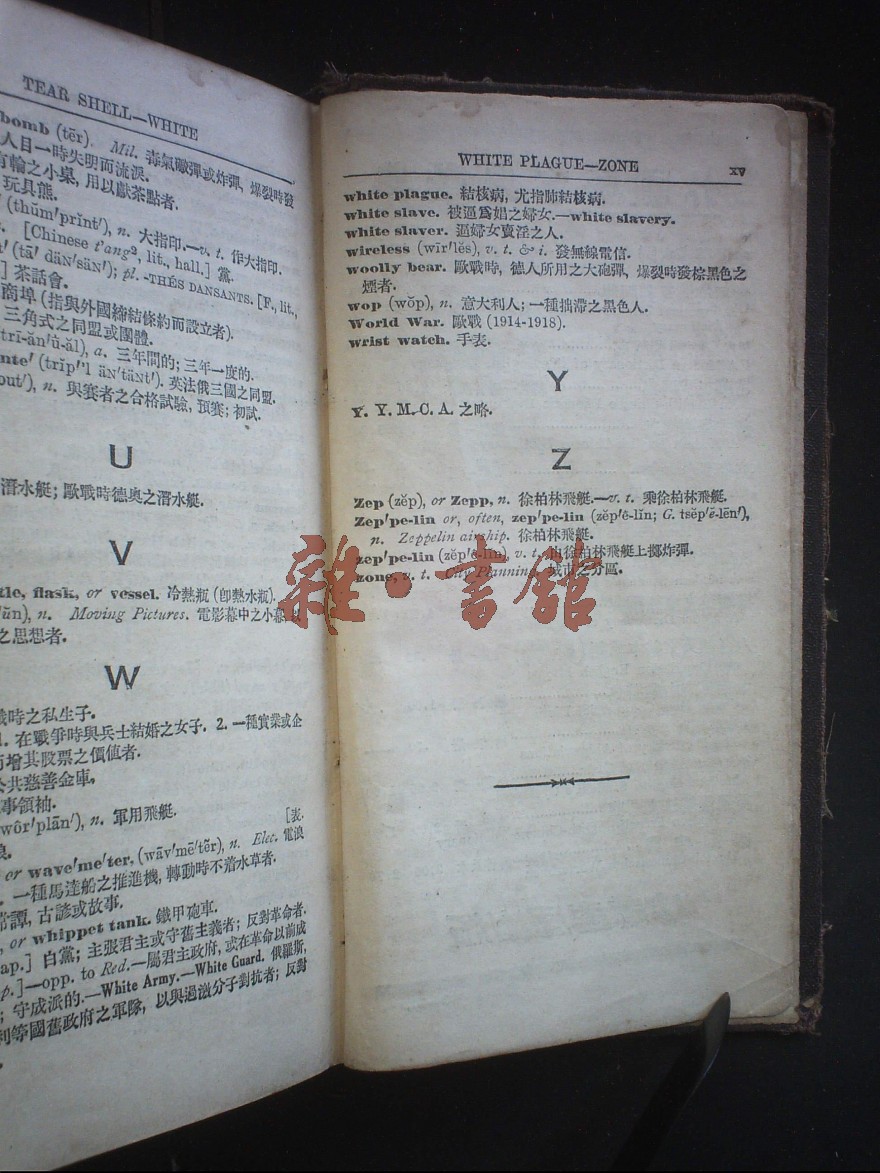 TEAR SHELL—WHITE
bomb (tēr). Mil. 毒氣礮彈或炸彈, 爆裂時發
人目一時失明而流淚.
有輪之小桌, 用以獻茶點者.
玩具熊.
(thŭm′prĭnt′), n. 大指印.—v. t. 作大指印.
[Chinese t'ang², lit., hall.] 黨.
(tā′ däN′säN′); pl. -THÉS DANSANTS. [F., lit.,
] 茶話會.
商埠 (指與外國締結條約而設立者).
三角式之同盟或團體.
trī-ăn′û-ăl), a. 三年間的; 三年一度的.
nte′ (trĭp′'l äN′täNt′). 英法俄三國之同盟.
out′), n. 與賽者之合格試驗, 預賽; 初試.
U
潛水艇; 歐戰時德奧之潛水艇.
V
tle, flask, or vessel. 冷熱瓶 (卽熱水瓶).
ŭn), n. Moving Pictures. 電影幕中之小幕
之思想者.
W
戰時之私生子.
1. 在戰爭時與兵士結婚之女子. 2. 一種實業或企
而增其股票之價值者.
公共慈善金庫.
事領袖.
wôr′plān′), n. 軍用飛艇.
[表.
浪.
or wave′me′ter, (wāv′mē′tẽr), n. Elec. 電浪
一種馬達船之推進機, 轉動時不着水草者.
常譚, 古諺或故事.
, or whippet tank. 鐵甲砲車.
ap.] 白黨; 主張君主或守舊主義者; 反對革命者.
p.]—opp. to Red.—屬君主政府, 或在革命以前成
; 守成派的.—White Army.—White Guard. 俄羅斯,
利等國舊政府之軍隊, 以與過激分子對抗者; 反對
WHITE PLAGUE—ZONE xv
white plague. 結核病, 尤指肺結核病.
white slave. 被逼爲娼之婦女.—white slavery.
white slaver. 逼婦女賣淫之人.
wireless (wīr′lĕs), v. t. & i. 發無線電信.
woolly bear. 歐戰時, 德人所用之大砲彈, 爆裂時發棕黑色之
煙者.
wop (wŏp), n. 意大利人; 一種拙滯之黑色人.
World War. 歐戰 (1914-1918).
wrist watch. 手表.
Y
Y. Y. M. C. A. 之略.
Z
Zep (zĕp), or Zepp, n. 徐柏林飛艇.—v. t. 乘徐柏林飛艇.
Zep′pe-lin or, often, zep′pe-lin (zĕp′ĕ-lĭn; G. tsĕp′ĕ-lēn′),
n. Zeppelin airship. 徐柏林飛艇.
zep′pe-lin (zĕp′ĕ-lĭn), v. t. 由徐柏林飛艇上擲炸彈.
zone, v. t. City Planning. 城市之分區.
雜·書館